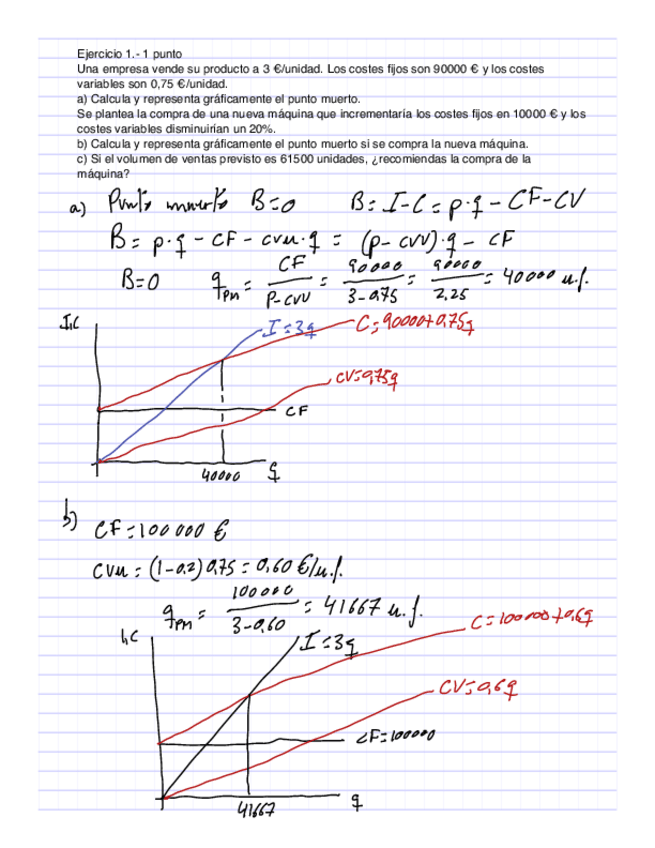 Ejercicio 1.- 1 punto
Una empresa vende su producto a 3 €/unidad. Los costes fijos son 90000 € y los costes
variables son 0,75 €/unidad.
a) Calcula y representa gráficamente el punto muerto.
Se plantea la compra de una nueva máquina que incrementaría los costes fijos en 10000 € y los
costes variables disminuirían un 20%.
b) Calcula y representa gráficamente el punto muerto si se compra la nueva máquina.
c) Si el volumen de ventas previsto es 61500 unidades, ¿recomiendas la compra de la
máquina?
a) Punto muerto B=0 B=I-C=p·q-CF-CV
B=p·q-CF-cvu·q=(p-cvu)·q-CF
B=0 qPM = CF/P-cvu = 90000/3-0,75 = 90000/2,25 = 40000 u.f.
I,C I=3q C=90000+0,75q
CV=0,75q
CF
40000 q
b) CF=100000 €
cvu=(1-0,2)0,75=0,60 €/u.f.
qPM = 100000/3-0,60 = 41667 u.f.
I,C I=3q C=100000+0,6q
CV=0,6q
CF=100000
41667 q